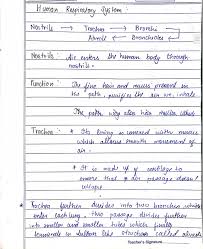 Human Respiratory System :
Nostrils → Trachea → Bronchi
Alveoli ← Bronchioles
Nostrils : Air enters the human body through
nostrils.
Function : The fine hair and mucus present in
the path, purifies the air we inhale
The path way also has mucus
Trachea : * Its lining is covered with mucus
which allows smooth movement of
air.
* It is made up of cartilage to
ensure that air passage doesn't
collapse
* Trachea further divides into two branches which
enter each lung. This passage divides further
into smaller and smaller tubes which finally
terminate in balloon like structure called alveoli
Teacher's Signature